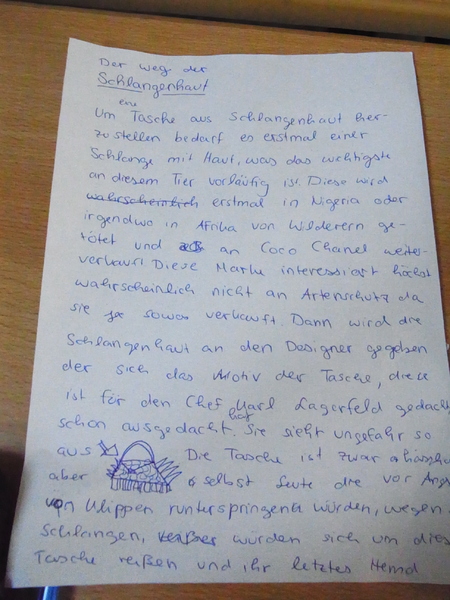 Der weg der
Schlangenhaut
eine
Um Tasche aus Schlangenhaut her-
zustellen bedarf es erstmal einer
Schlange mit Haut, was das wichtigste
an diesem Tier vorläufig ist. Diese wird
wahrscheinlich erstmal in Nigeria oder
irgendwo in Afrika von Wilderern ge-
tötet und an Coco Chanel weiter-
verkauft. Diese Marke interessiert höchst
wahrscheinlich nicht an Artenschutz da
sie ja sowas verkauft. Dann wird die
Schlangenhaut an den Designer gegeben
der sich das Motiv der Tasche, diese
ist für den Chef Karl Lagerfeld gedacht,
schon ausgedacht hat. Sie sieht ungefähr so
aus Die Tasche ist zwar
aber selbst Leute die vor Angst
von Klippen runterspringend würden, wegen
Schlangen, würden sich um diese
Tasche reißen und ihr letztes Hemd